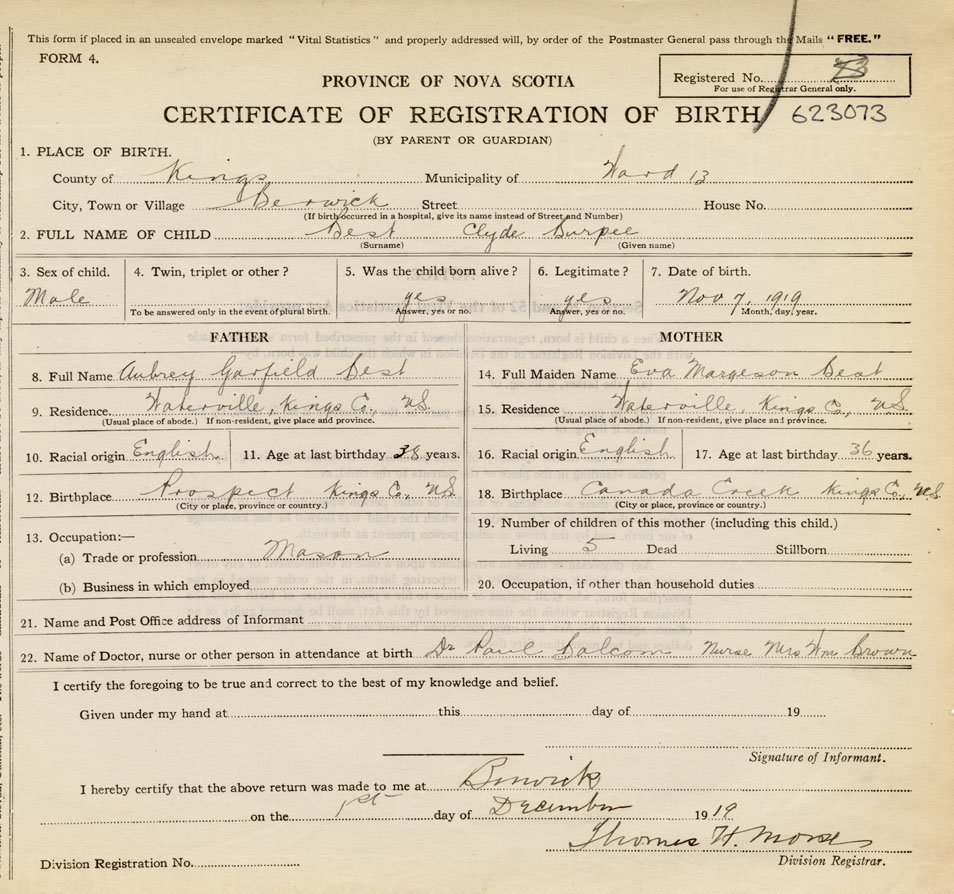 This form if placed in an unsealed envelope marked "Vital Statistics" and properly addressed will, by order of the Postmaster General pass through the Mails "FREE."
FORM 4.
PROVINCE OF NOVA SCOTIA
Registered No. 73
For use of Registrar General only.
CERTIFICATE OF REGISTRATION OF BIRTH 623073
(BY PARENT OR GUARDIAN)
1. PLACE OF BIRTH.
County of Kings Municipality of Ward 13
City, Town or Village Berwick Street House No.
(If birth occurred in a hospital, give its name instead of Street and Number)
2. FULL NAME OF CHILD Best Clyde Burpee
(Surname) (Given name)
3. Sex of child. 4. Twin, triplet or other? 5. Was the child born alive? 6. Legitimate? 7. Date of birth.
Male yes yes Nov 7, 1919
To be answered only in the event of plural birth. Answer, yes or no. Answer, yes or no. Month, day, year.
FATHER MOTHER
8. Full Name Aubrey Garfield Best 14. Full Maiden Name Eva Margeson Best
9. Residence. Waterville, Kings Co., N.S. 15. Residence Waterville, Kings Co., N.S.
(Usual place of abode.) If non-resident, give place and province. (Usual place of abode.) If non-resident, give place and province.
10. Racial origin English 11. Age at last birthday 38 years. 16. Racial origin English 17. Age at last birthday 36 years.
12. Birthplace Prospect Kings Co., N.S. 18. Birthplace Canada Creek Kings Co., N.S.
(City or place, province or country.) (City or place, province or country.)
13. Occupation:— 19. Number of children of this mother (including this child.)
(a) Trade or profession Mason Living 5 Dead Stillborn
(b) Business in which employed 20. Occupation, if other than household duties
21. Name and Post Office address of Informant
22. Name of Doctor, nurse or other person in attendance at birth Dr Paul Balcom Nurse Mrs Wm Brown
I certify the foregoing to be true and correct to the best of my knowledge and belief.
Given under my hand at this day of 19
Signature of Informant.
I hereby certify that the above return was made to me at Berwick
on the 1st day of December 1919
Thomas H. Morse
Division Registration No. Division Registrar.